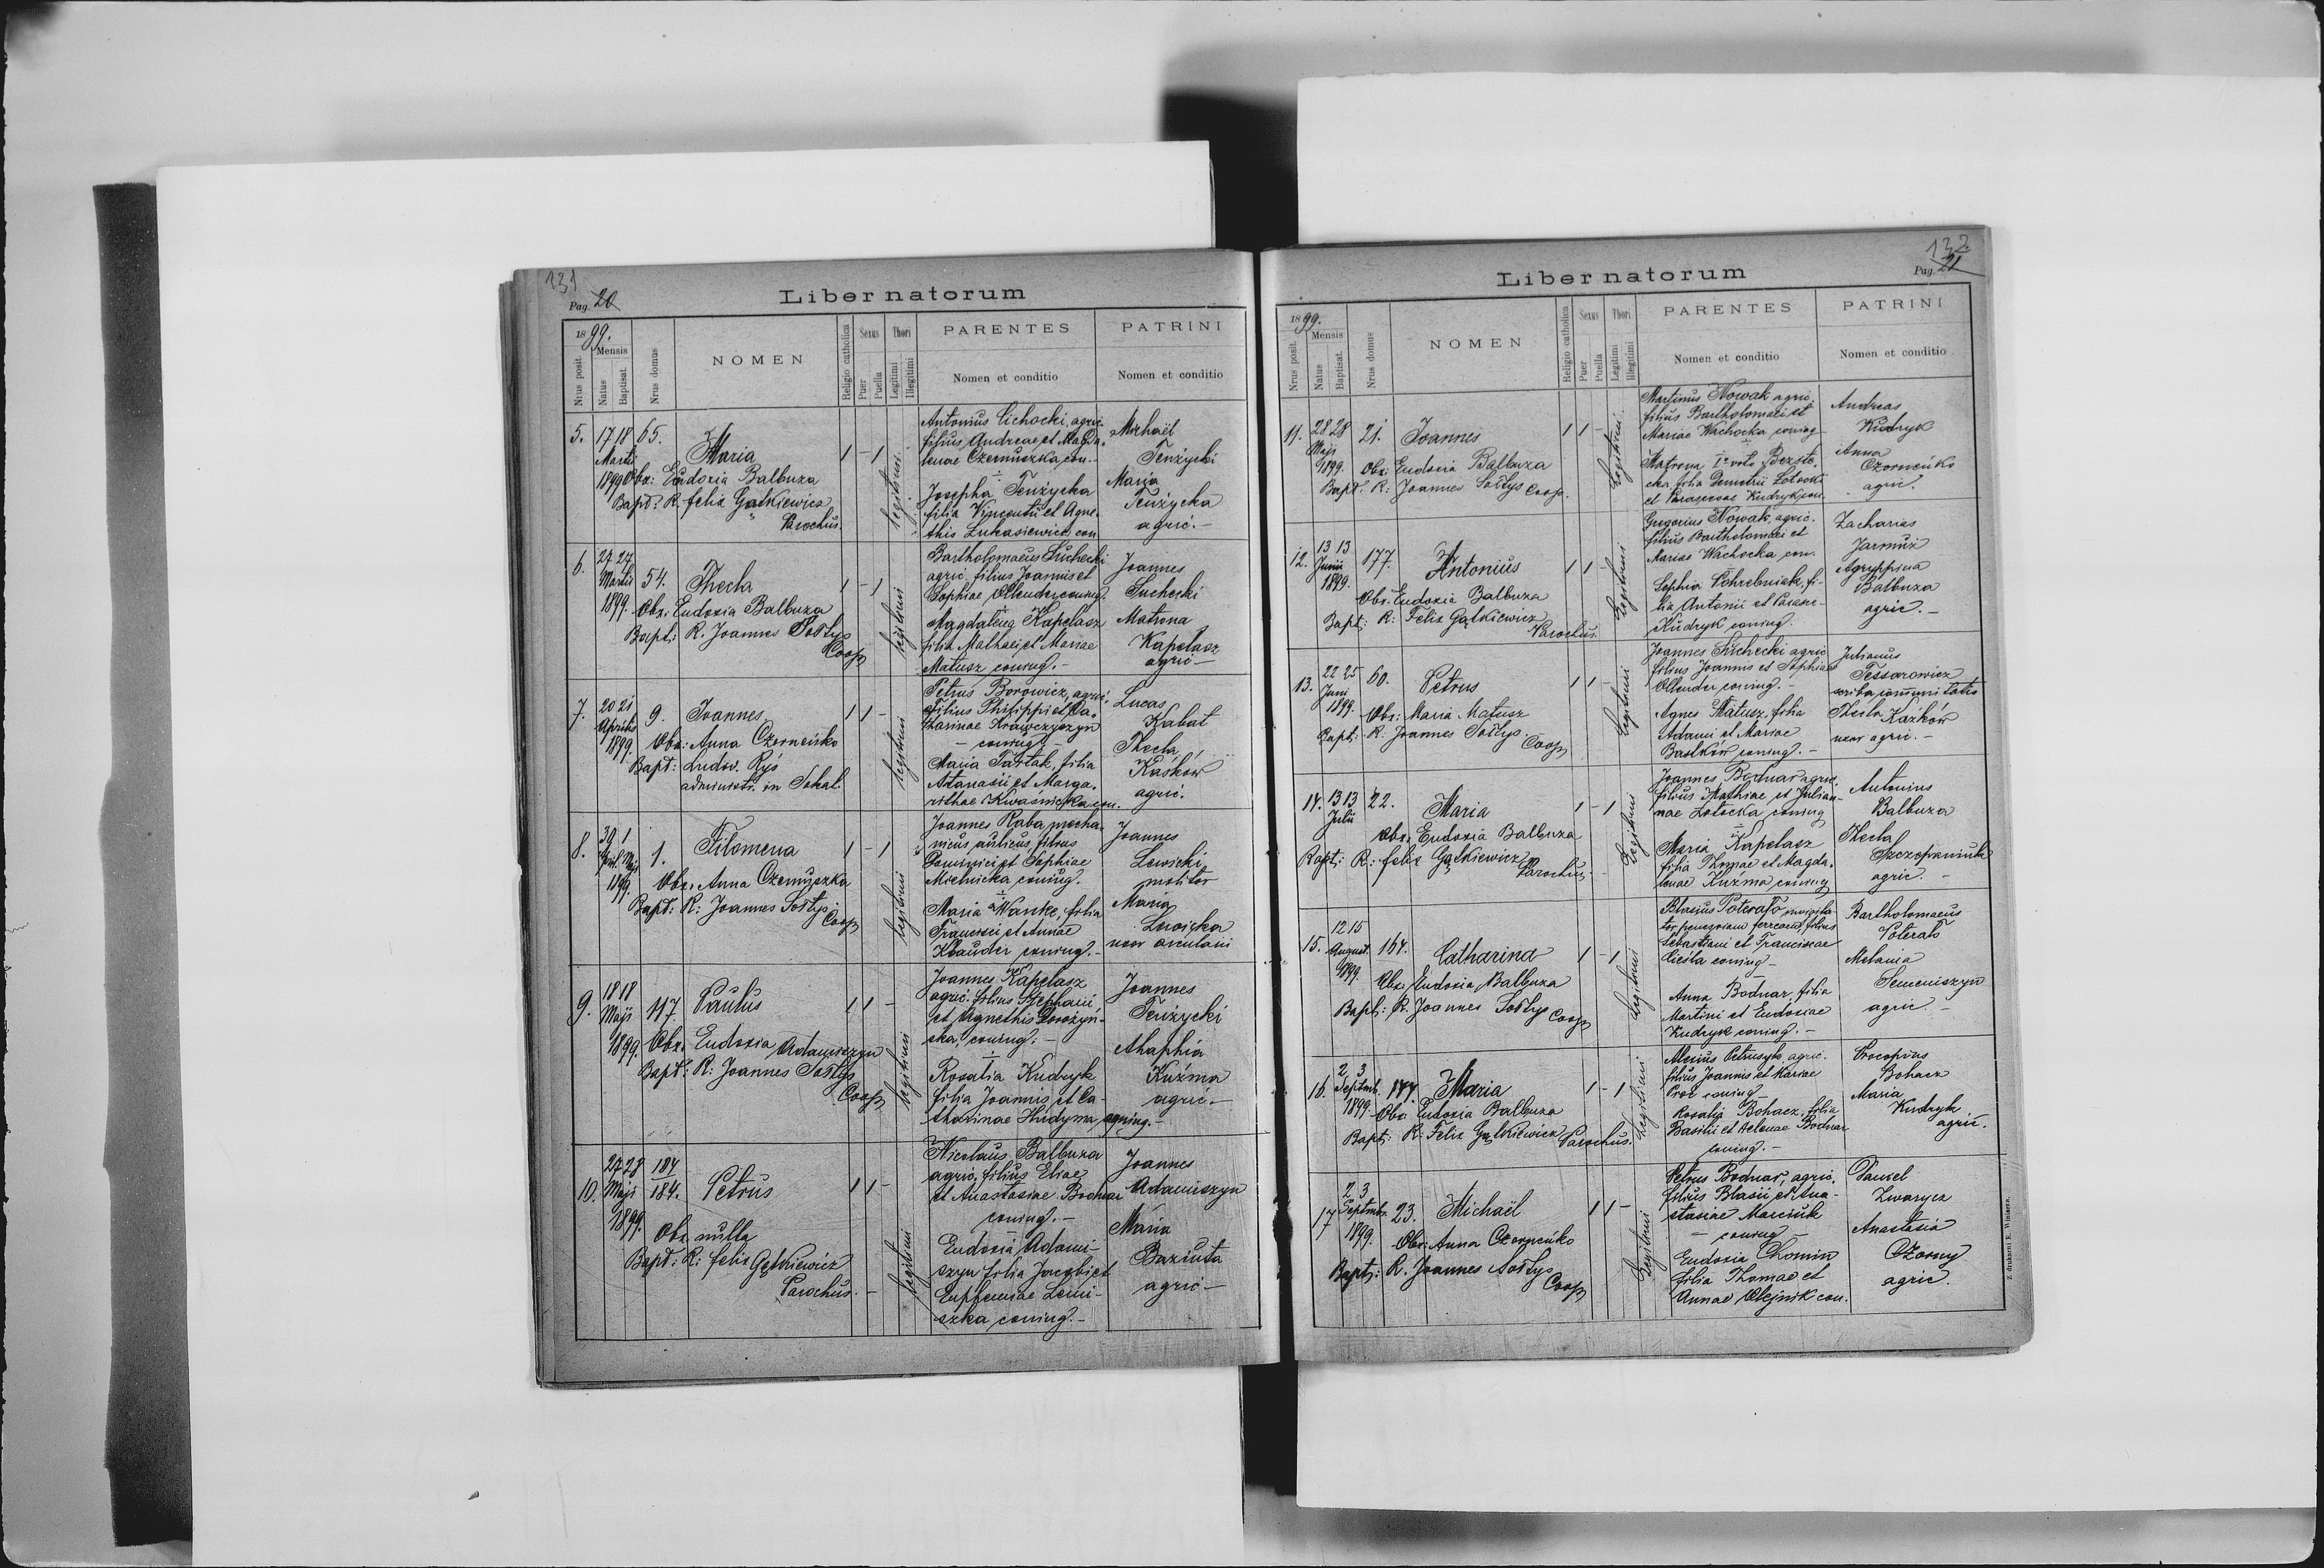 131
Pag. 20
Liber natorum
1899.
Nrus posit.
Mensis
Natus
Baptisat.
Nrus domus
NOMEN
Religio catholica
Sexus
Puer
Puella
Thori
Legitimi
Illegitimi
PARENTES
Nomen et conditio
PATRINI
Nomen et conditio
5. 17 18 65.
Martii
1899
Maria
1 - 1
Obx: Eudoxia Balbuza
Bapt: R. Felix Gątkiewicz
Parochus.
legitimi
Antonius Cichocki, agric.
filius Andreae et Magda-
lenae Czernuszka, con.
Josepha Tenżycka
filia Vincentii et Agne-
this Łukasiewicz con
Michaël
Tenżycki
Maria
Tenżycka
agric. -
6. 27 27
Martii 54. Thecla
1 - 1
1899. Obx: Eudoxia Balbuza
Bapt: R. Joannes Sołtys
Coop
legitimi
Bartholomaeus Suchecki
agric. filius Joannis et
Sophiae Ollender coniug.
Magdalena Kapelasz
filia Mathaei et Mariae
Matusz coniug. -
Joannes
Suchecki
Matrona
Kapelasz
agric -
7. 20 21
Aprilis 9. Joannes
1 1 -
1899. Obx: Anna Czorneńko
Bapt: Ludov. Ryś
administr. in Sokal.
legitimi
Petrus Borowicz, agric.
filius Philippi et Ca-
tharinae Krawczyszyn
- coniug. -
Maria Tartak, filia
Atanasii et Marga-
rithae Kwaśnicka con.
Lucas
Kabat
Thecla
Kaśków
agric.
8. 30 1
April. Maji 1. Filomena
1 - 1
1899.
Obx. Anna Czernuszka
Bapt: R: Joannes Sołtys
Coop
legitimi
Joannes Raba mecha-
nicus filius
Dominici et Sophiae
Mielnicka coniug.
Maria Wanke, filia
Francisci et Annae
Klauder coniug. -
Joannes
Lewicki
molitor
Maria
uxor
9. 18 18
Maji 117. Paulus
1 1 -
1899. Obx. Eudoxia Adamiszyn
Bapt: R: Joannes Sołtys
Coop
legitimi
Joannes Kapelasz
agric. filius Stephani
et Agnethis Dorożyń-
ska, coniug. -
Rosalia Kudryk
filia Joannis et Ca-
tharinae Hudyma coniug. -
Joannes
Tenżycki
Ahaphia
Kuźma
agric. -
10. 27 28 184
Maji 184. Petrus
1 1 -
1899. Obx. nulla
Bapt: R: Felix Gątkiewicz
Parochus. -
legitimi
Nicolaus Balbuza
agric. filius Eliae
et Anastasiae Bodnar
coniug. -
Eudoxia Adami-
szyn filia Jacobi et
Euphemiae Lemi-
szka coniug. -
Joannes
Adamiszyn
Maria
Baziuta
agric -
132.
Pag. 21
Liber natorum
1899.
Nrus posit.
Mensis
Natus
Baptisat.
Nrus domus
NOMEN
Religio catholica
Sexus
Puer
Puella
Thori
Legitimi
Illegitimi
PARENTES
Nomen et conditio
PATRINI
Nomen et conditio
11. 28 28 21. Joannes
1 1 -
Maji
1899. Obx: Eudoxia Balbuza
Bapt. R: Joannes Sołtys Coop.
legitimi
Martinus Nowak agric.
filius Bartholomaei et
Mariae Wachocka coniug
Matrona
filia Demetrii Zołocki
et Parascevae Kudryk con.
Andreas
Kudryk
Anna
Czorneńko
agric.
12. 13 13 177. Antonius
1 1 -
Junii
1899
Obx: Eudoxia Balbuza
Bapt: R: Felix Gątkiewicz
Parochus.
legitimi
Gregorius Nowak, agric.
filius Bartholomaei et
Mariae Wachocka con.
Sophia Pohrebniak, fi-
lia Antonii et Parasc-
Kudryk coniug.
Zacharias
Jarmuż
Agryppina
Balbuza
agric. -
13. 22 25 60. Petrus
1 1 -
Juni
1899. Obx: Maria Matusz
Bapt: R. Joannes Sołtys
Coop
legitimi
Joannes Suchecki agric
filius Joannis et Sophiae
Ollender coniug. -
Agnes Matusz, filia
Adami et Mariae
Baśków coniug. -
Julianus
Tessarowicz
scriba communitatis
Thecla Kaźków
uxor agric. -
14. 13 13 22. Maria
1 - 1
Julii
Obx. Eudoxia Balbuza
Bapt: R: Felix Gątkiewicz
Parochus -
legitimi
Joannes Bodnar agric.
filius Mathiae et Julian-
nae Zołocka coniug
Maria Kapelasz
filia Thomae et Magda-
lenae Kuźma coniug
Antonius
Balbuza
Thecla
Szczepaniuk
agric. -
15. 12 15
August. 164. Catharina
1 - 1
1899
Obx. Eudoxia Balbuza
Bapt: R. Joannes Sołtys Coop
legitimi
Blasius Poterało
filius
Sebastiani et Franciscae
Cieśla coniug -
Anna Bodnar, filia
Martini et Eudoxiae
Kudryk coniug. -
Bartholomaeus
Poterało
Melania
Semeniszyn
agric. -
16. 2 3
Septemb. 144. Maria
1 - 1
1899. Obx. Eudoxia Balbuza
Bapt: R: Felix Gątkiewicz Parochus.
legitimi
Alexius Petrusyk, agric.
filius Joannis et Mariae
coniug -
Rosalia Bohacz, filia
Basilii et Helenae Bodnar
coniug. -
Procopius
Bohacz
Maria
Kudryk
agric.
17 2 3
Septembr. 23. Michaël
1 1 -
1899. Obx: Anna Czorneńko
Bapt: R. Joannes Sołtys
Coop
legitimi
Petrus Bodnar, agric.
filius Blasii et Ana-
stasiae Marciuk
- coniug -
Eudoxia Chomin
filia Thomae et
Annae Olejnik con.
Daniel
Zwarycz
Anastasia
Czorny
agric.
Z drukarni E. Winiarz.